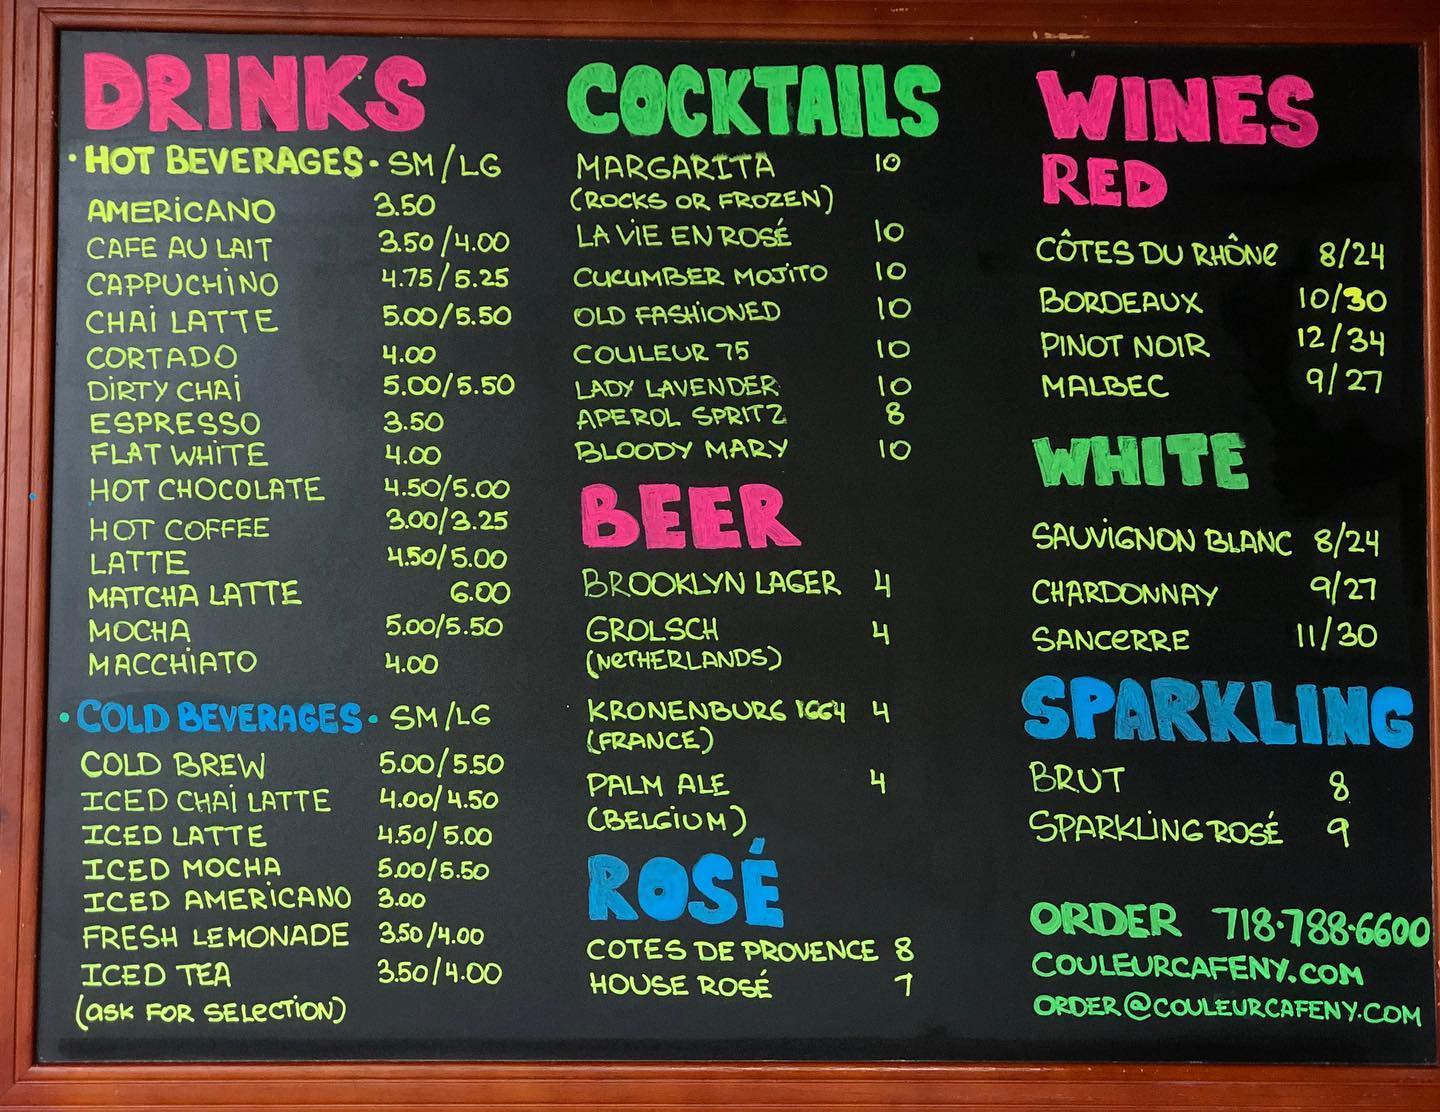 DRINKS
• HOT BEVERAGES • SM/LG
AMERICANO 3.50
CAFE AU LAIT 3.50/4.00
CAPPUCHINO 4.75/5.25
CHAI LATTE 5.00/5.50
CORTADO 4.00
DIRTY CHAI 5.00/5.50
ESPRESSO 3.50
FLAT WHITE 4.00
HOT CHOCOLATE 4.50/5.00
HOT COFFEE 3.00/3.25
LATTE 4.50/5.00
MATCHA LATTE 6.00
MOCHA 5.00/5.50
MACCHIATO 4.00
• COLD BEVERAGES • SM/LG
COLD BREW 5.00/5.50
ICED CHAI LATTE 4.00/4.50
ICED LATTE 4.50/5.00
ICED MOCHA 5.00/5.50
ICED AMERICANO 3.00
FRESH LEMONADE 3.50/4.00
ICED TEA 3.50/4.00
(ASK FOR SELECTION)
COCKTAILS
MARGARITA 10
(ROCKS OR FROZEN)
LA VIE EN ROSÉ 10
CUCUMBER MOJITO 10
OLD FASHIONED 10
COULEUR 75 10
LADY LAVENDER 10
APEROL SPRITZ 8
BLOODY MARY 10
BEER
BROOKLYN LAGER 4
GROLSCH 4
(NETHERLANDS)
KRONENBURG 1664 4
(FRANCE)
PALM ALE 4
(BELGIUM)
ROSÉ
COTES DE PROVENCE 8
HOUSE ROSÉ 7
WINES
RED
CÔTES DU RHÔNE 8/24
BORDEAUX 10/30
PINOT NOIR 12/34
MALBEC 9/27
WHITE
SAUVIGNON BLANC 8/24
CHARDONNAY 9/27
SANCERRE 11/30
SPARKLING
BRUT 8
SPARKLING ROSÉ 9
ORDER 718·788·6600
COULEURCAFENY.COM
ORDER@COULEURCAFENY.COM